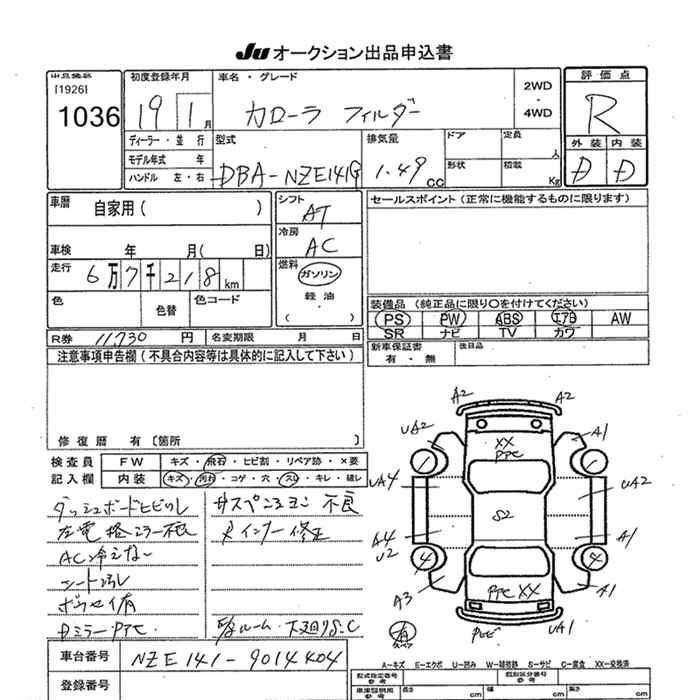 Ju オークション出品申込書
[1926]
1036
初度登録年月
19 1月
車名・グレード
カローラ フィルダー
2WD
・
4WD
評価点
R
外装 内装
D D
ディーラー・並行
モデル年式 年
ハンドル 左・右
型式
DBA-NZE141G
排気量
1.49 CC
ドア
形状
定員
人
積載
Kg
車歴 自家用( )
車検 年 月( 日)
走行 6万7千218km
色
色替
色コード
シフト
AT
冷房
AC
燃料
ガソリン
軽油
( )
セールスポイント(正常に機能するものに限ります)
装備品(純正品に限り○を付けてください)
PS PW ABS エアB AW
SR ナビ TV カワ
新車保証書
有・無
後日品
R券 11,730 円
名変期限 月 日
注意事項申告欄(不具合内容等は具体的に記入して下さい)
修復歴 有〔箇所 〕
検査員 FW キズ・飛石・ヒビ割・リペア跡・×要
記入欄 内装 キズ・汚れ・コゲ・穴・スレ・キレ・破レ
ダッシュボードヒビワレ
左電格ミラー不良
AC冷えない
シート汚レ
サスペンション 不良
インナー修正
A2 A2
UA2 A1
XX
PPC
UA4 UA2
S2
A4 A1
U2
4 4
A3 A1
PPC XX
UA1
車台番号 NZE141-9014404
登録番号
A=キズ E=エクボ U=凹み W=補修跡 S=サビ C=腐食 XX=交換済
型式指定番号
参考
類別区分番号
参考
長さ cm 幅 cm 高さ cm